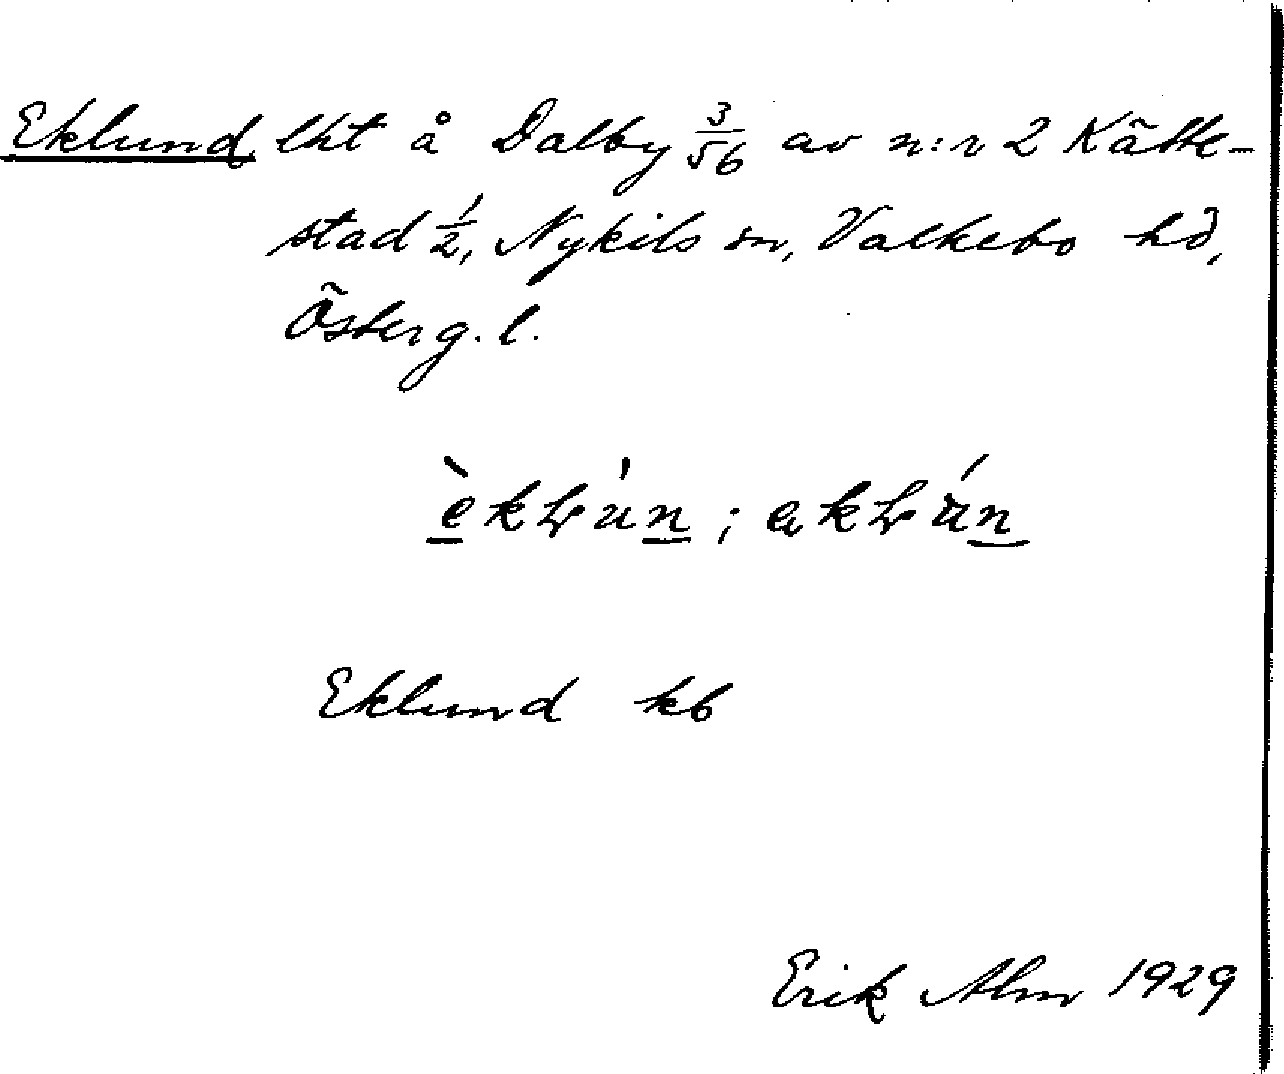 Eklund lht å Dalby 3/56 av n:r 2 Kätte-
stad 1/2, Nykils sn, Valkebo hd,
Österg. l.
Eklund kb
Erik Alm 1929